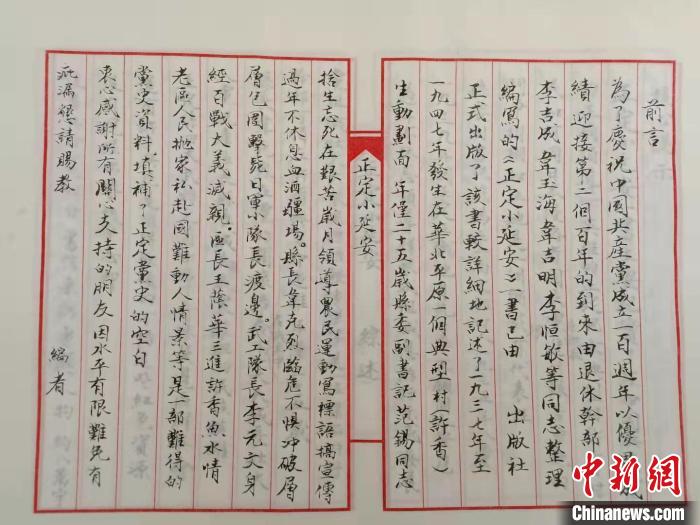 前言
为了慶祝中國共產黨成立一百週年以優異成
績迎接第二個百年的到來由退休幹部
李吉成韋玉海韋吉明李恒敏等同志整理
編寫的《正定小延安》一書已由 出版社
正式出版了該書較詳細地記述了一九三七年至
一九四七年發生在華北平原一個典型村(許香)
生動劃面 年僅二十五歲縣委副書記范錫同志
正定小延安
捨生忘死在艱苦歲月領導農民運動寫標語搞宣傳
過年不休息血洒疆場。縣長韋克烈臨危不懼冲破層
層包圍擊斃日軍小隊長渡邊。武工隊長李元文身
經百戰大義滅親。區長王蔭華三進許香魚水情
老區人民抛家私赴國難動人情景等是一部難得的
黨史資料填補了正定黨史的空白
衷心感謝所有關心支持的朋友因水平有限難免有
疵漏懇請賜教
編者
中新网
Chinanews.com